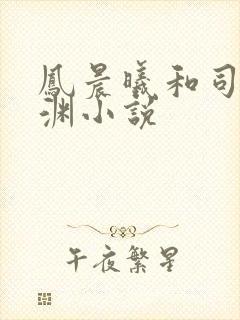 鳳晨曦和司
渊小説
午夜繁星